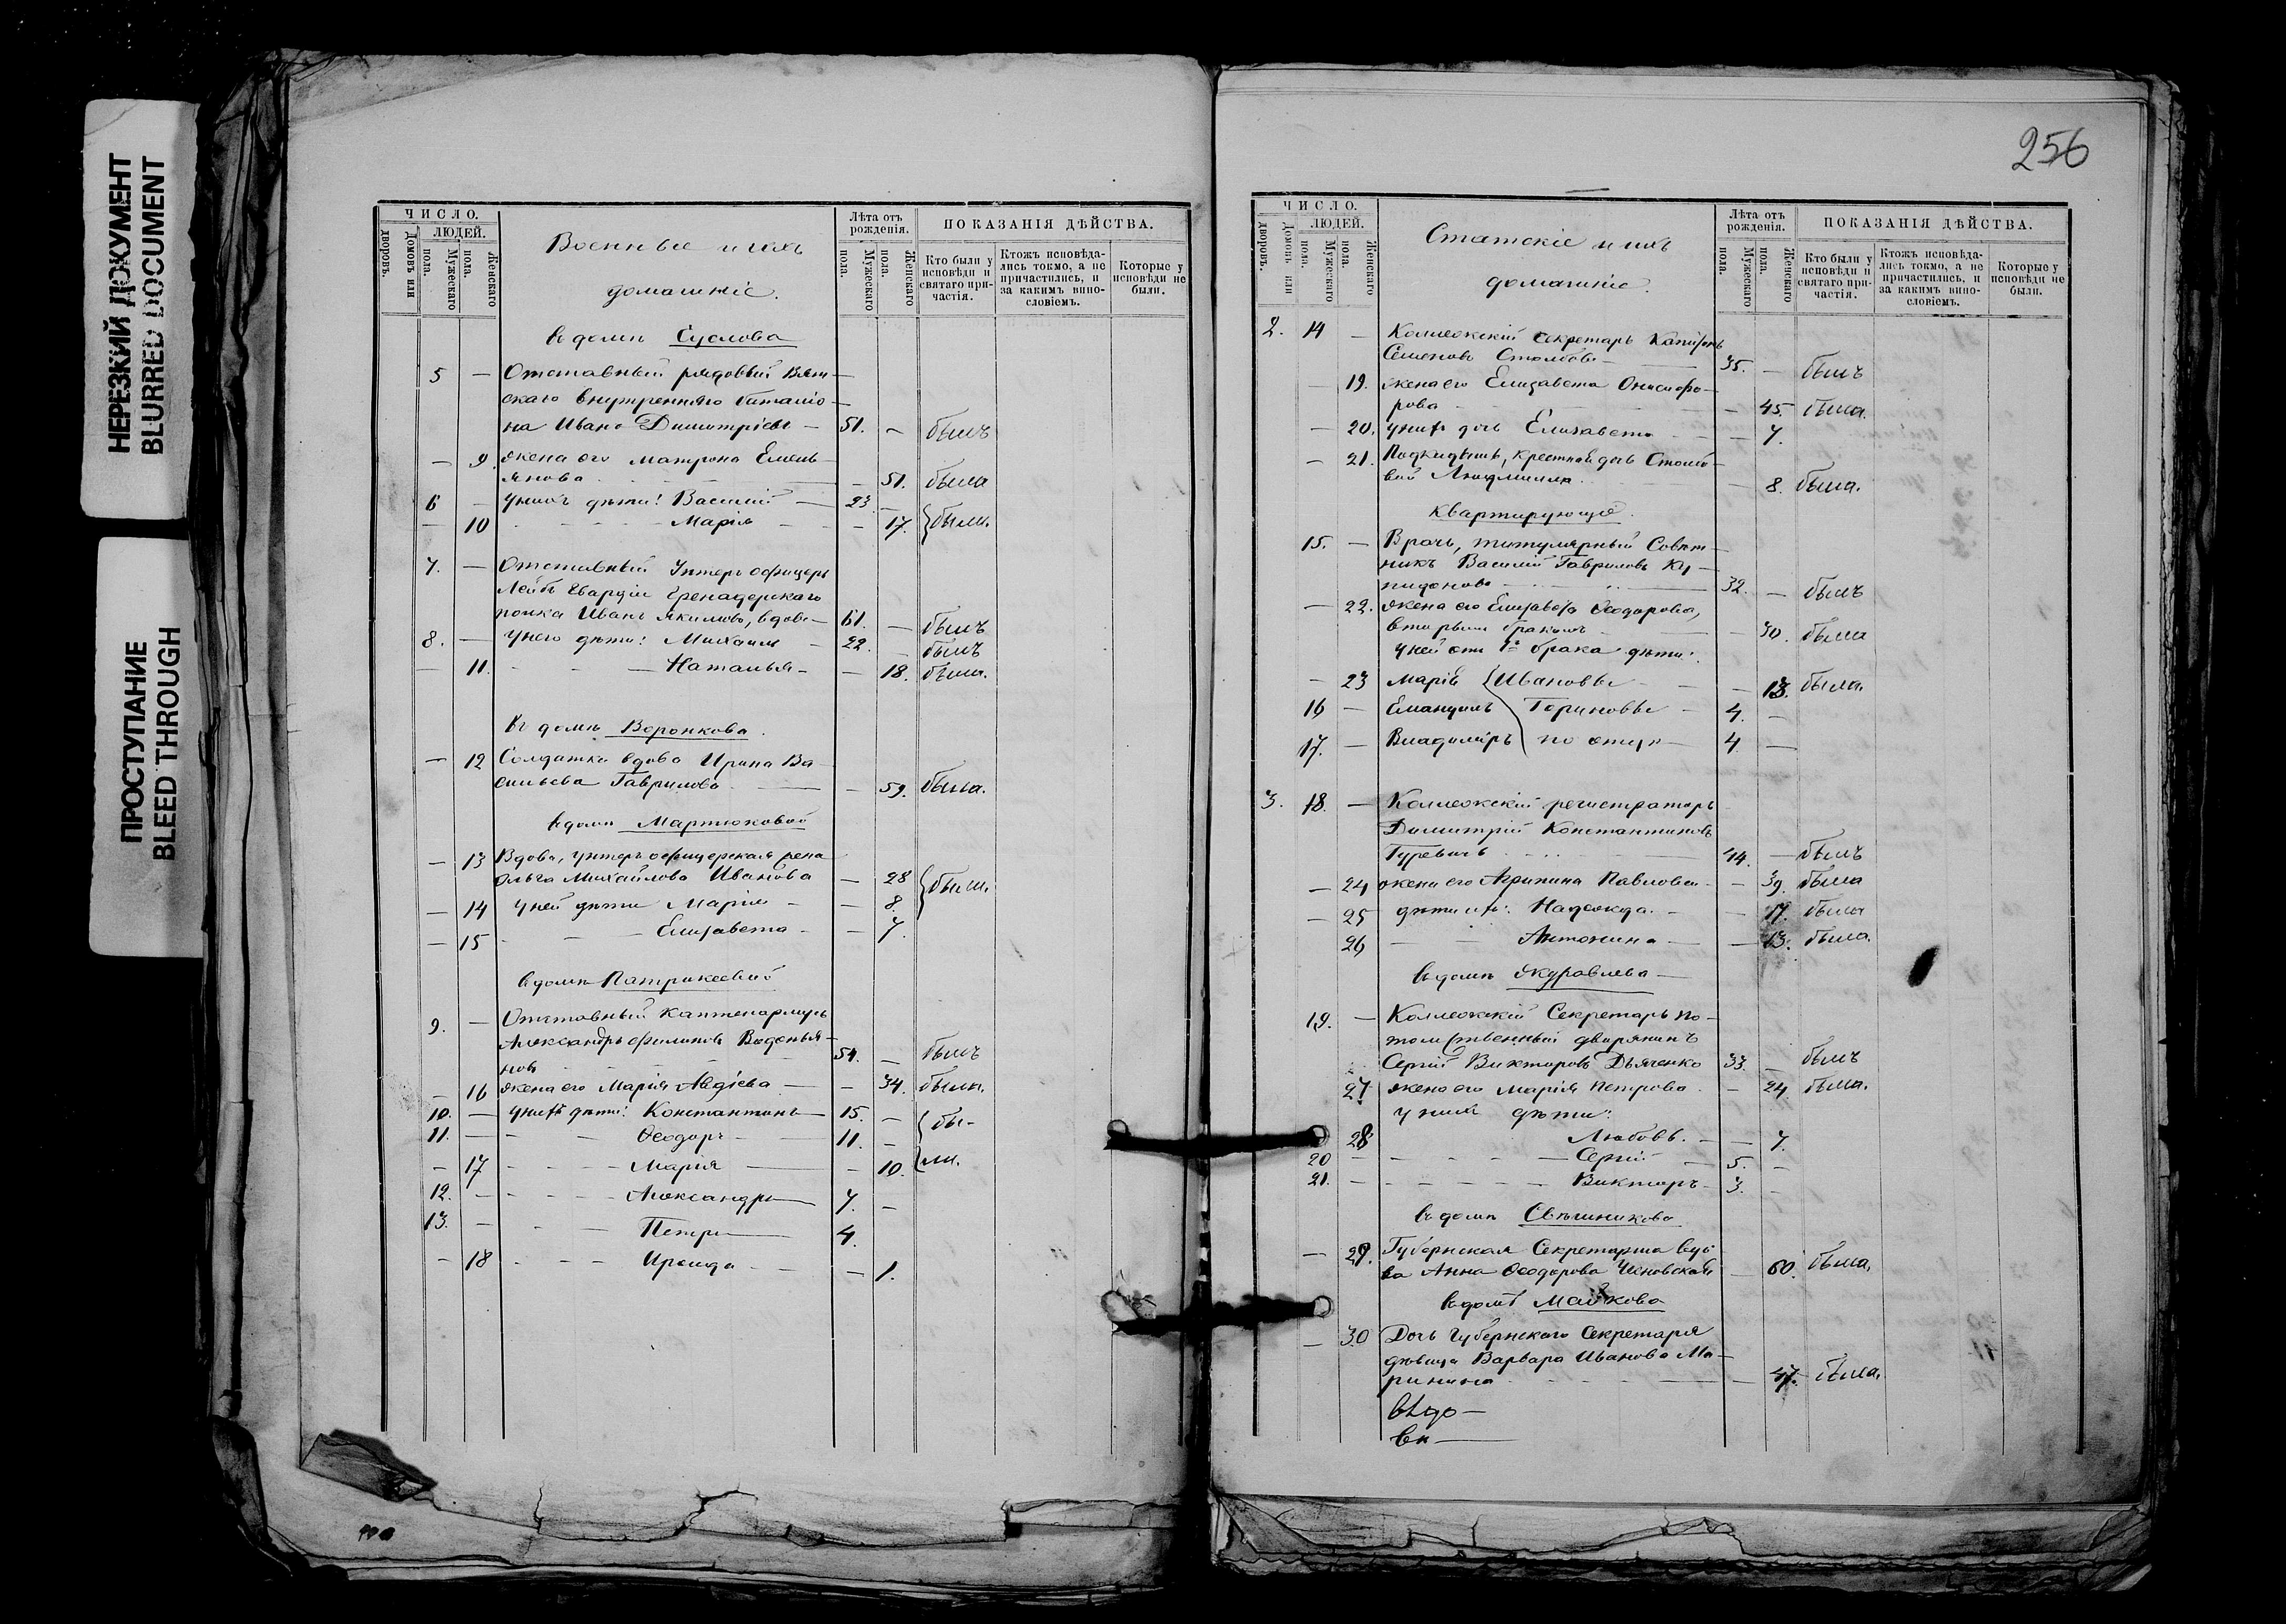 НЕРЕЗКИЙ ДОКУМЕНТ
BLURRED DOCUMENT
ПРОСТУПАНИЕ
BLEED THROUGH
ЧИСЛО.
ЛЮДЕЙ.
Домовъ или дворовъ.
Мужескаго пола.
Женскаго пола.
Военные и ихъ
домашніе.
Лѣта отъ рожденія.
Мужескаго пола.
Женскаго пола.
ПОКАЗАНІЯ ДѢЙСТВА.
Кто были у исповѣди и святаго причастія.
Ктожъ исповѣдались токмо, а не причастились, и за какимъ винословіемъ.
Которые у исповѣди не были.
въ домѣ Суслова
5 — Отставный рядовый Вят—
скаго внутренняго баталіо—
на Иванъ Димитріевъ — 51. — былъ
— 9. жена его Матрона Емель—
янова — 51. была
6 — у нихъ дѣти: Василій — 23 —
— 10 — Марія — 17. были.
7. — Отставный Унтеръ офицеръ
Лейбъ Гвардіи Гренадерскаго
полка Иванъ Якимовъ, вдовъ — 61. — былъ
8. — У него дѣти: Михаилъ — 22. — былъ
— 11. — Наталья — 18. была.
въ домѣ Воронкова.
— 12 Солдатка вдова Ирина Ва
сильева Гаврилова — 59. была.
въ домѣ Мартюковой
— 13 Вдова, унтеръ офицерская жена
Ольга Михайлова Иванова — 28 были.
— 14 У ней дѣти Марія — 8.
— 15 — Елизавета — 7.
въ домѣ Патрикеевой
9. — Отставный каптенармусъ
Александръ Филиповъ
новъ 54. — былъ
— 16 жена его Марія Авдіева — 34. была.
10. — у нихъ дѣти: Константинъ — 15 — бы-
11. — Ѳеодоръ — 11. —
— 17 — Марія — 10. ли.
12. — Александръ — 7. —
13. — Петръ — 4.
— 18 — Ираида — 1.
256
ЧИСЛО.
ЛЮДЕЙ.
Домовъ или дворовъ.
Мужескаго пола.
Женскаго пола.
Статскіе и ихъ
домашніе.
Лѣта отъ рожденія.
Мужескаго пола.
Женскаго пола.
ПОКАЗАНІЯ ДѢЙСТВА.
Кто были у исповѣди и святаго причастія.
Ктожъ исповѣдались токмо, а не причастились, и за какимъ винословіемъ.
Которые у исповѣди не были.
2. 14 — Коллежскій Секретарь Капитонъ
Семеновъ Столбовъ — 35. — былъ
— 19. жена его Елизавета Онисифо—
рова — 45. была.
— 20. у нихъ дочь Елизавета — 7.
— 21. Подкидышъ, крестная дочь Столбо-
вой Людмила — 8. была.
Квартирующіе.
15. — Врачъ, титулярный Совѣт—
никъ Василій Гавриловъ Ку—
пидоновъ — 32. — былъ
— 22. жена его Елизавета Ѳеодорова,
вторымъ бракомъ — 30. была
у ней отъ 1го брака дѣти:
— 23 Марія Ивановы — 13. была.
16 — Емануилъ Гориновы — 4. —
17. — Владиміръ по отцу — 4. —
3. 18. — Коллежскій регистраторъ
Димитрій Константиновъ
Гуревичъ — 44. — былъ
— 24 жена его Агрипина Павлова — 39. была
— 25 дѣти ихъ: Надежда — 17. была
26 — Антонина — 13. была.
въ домѣ Журавлева —
19. — Коллежскій Секретарь по-
томственный дворянинъ
Сергій Викторовъ Дьяченко 33. — былъ
27 жена его Марія Петрова. — 24. была.
у нихъ дѣти:
28 Любовь. — 7.
20 — Сергій — 5. —
21. — Викторъ — 3. —
въ домѣ Свѣшникова
— 29. Губернская Секретарша вдо
ва Анна Ѳеодорова — 60. была.
въ домѣ Майкова
— 30 Дочь Губернскаго Секретаря
дѣвица Варвара Иванова Ма—
ринина — 47. была.